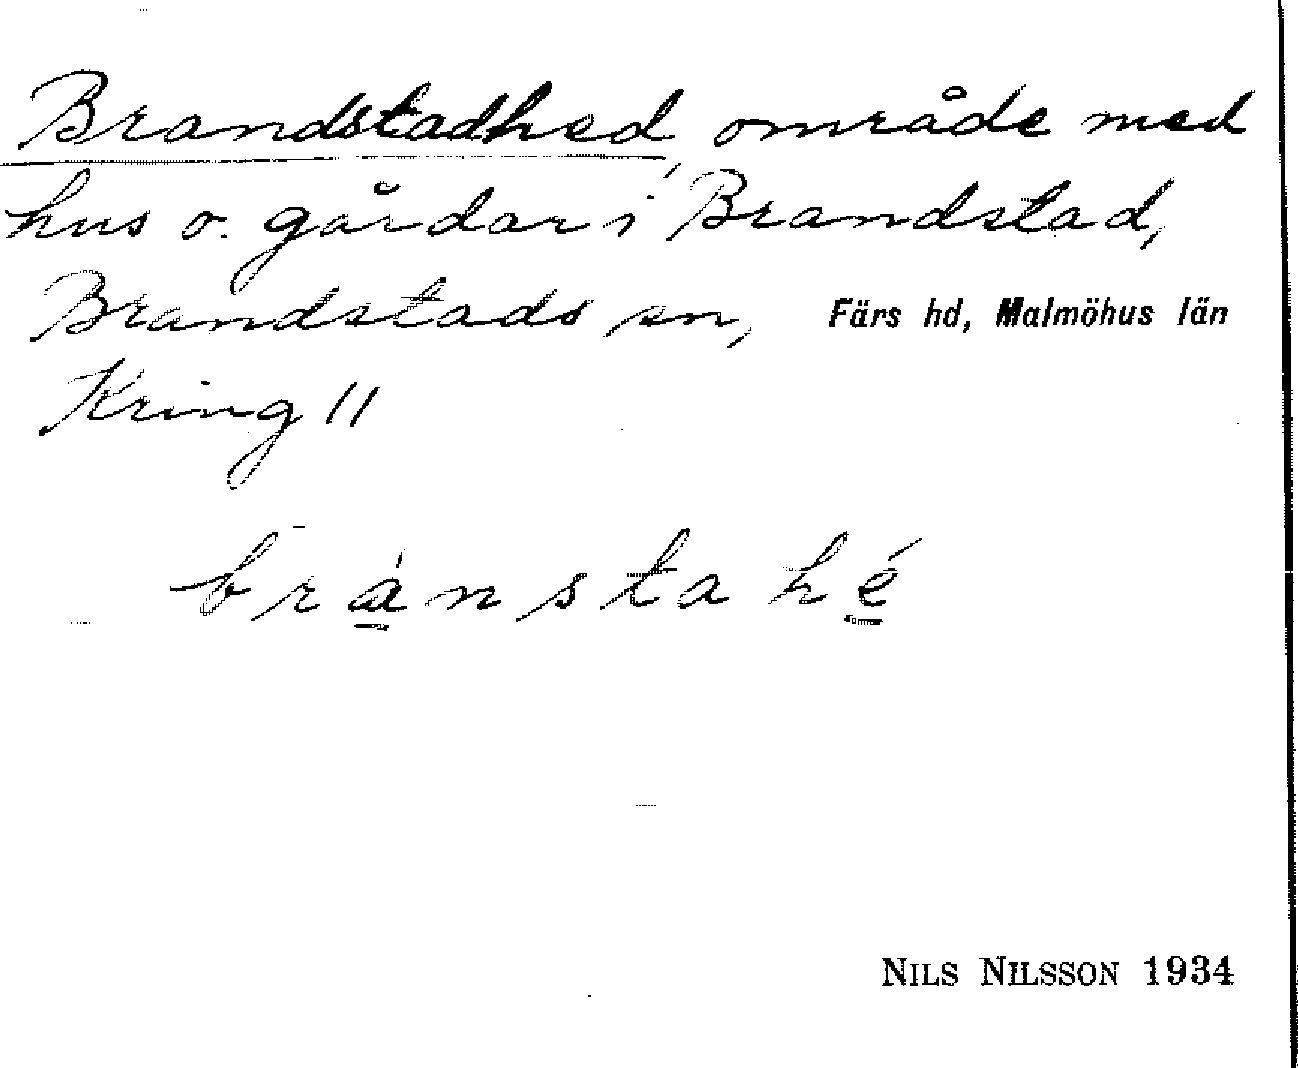 Brandstadhed, område med
hus o. gårdar i Brandstad,
Brandstads sn, Färs hd, Malmöhus län
Kring 11
bránsta hé
NILS NILSSON 1934